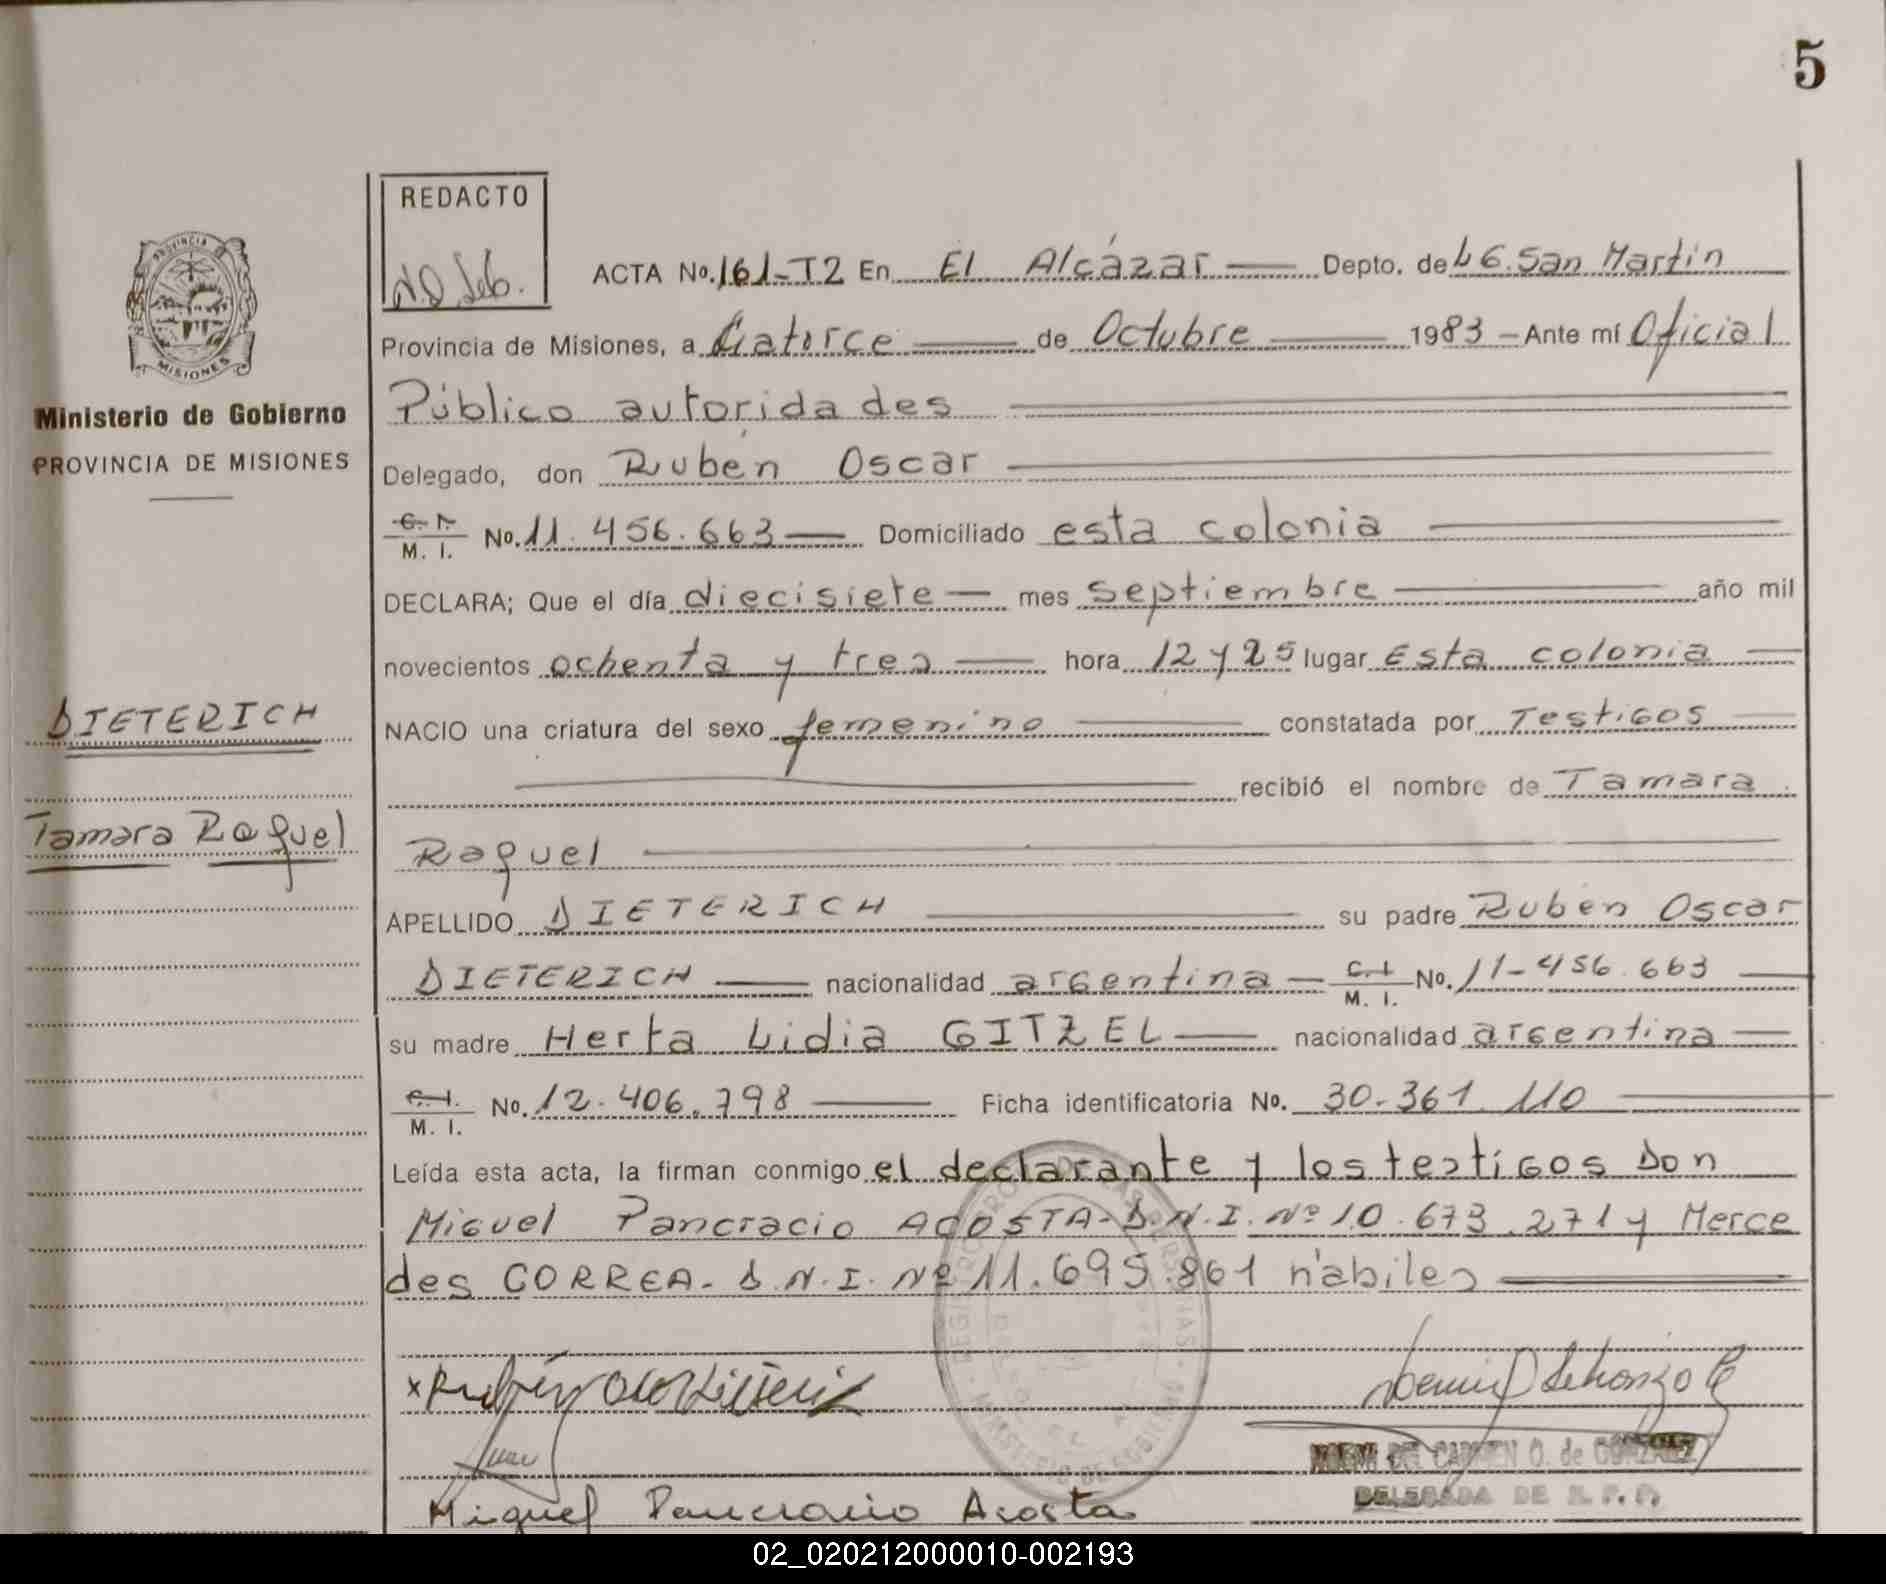 5
REDACTO
ACTA No. 161-T2 En El Alcázar Depto. de L G. San Martin
Provincia de Misiones, a Catorce de Octubre 1983 - Ante mí Oficial
Público autoridades
Delegado, don Rubén Oscar
C. I. M. I. No. 11.456.663 Domiciliado esta colonia
DECLARA; Que el día diecisiete mes septiembre año mil
novecientos ochenta y tres hora 12 y 25 lugar Esta colonia
NACIO una criatura del sexo femenino constatada por Testigos
recibió el nombre de Tamara
Raquel
APELLIDO DIETERICH su padre Rubén Oscar
DIETERICH nacionalidad argentina C. I. M. I. No. 11-456.663
su madre Herta Lidia GITZEL nacionalidad argentina
C. I. M. I. No. 12.406.798 Ficha identificatoria No. 30-361.110
Leída esta acta, la firman conmigo el declarante y los testigos Don
Miguel Pancracio ACOSTA-D.N.I. Nº 10.673.271 y Merce
des CORREA- D.N.I. Nº 11.695.861 hábiles
Miguel Pancracio Acosta
DEL CARMEN O. de GONZALEZ
DELEGADA DE R. P. P.
PROVINCIA DE
MISIONES
Ministerio de Gobierno
PROVINCIA DE MISIONES
DIETERICH
Tamara Raquel
02_020212000010-002193